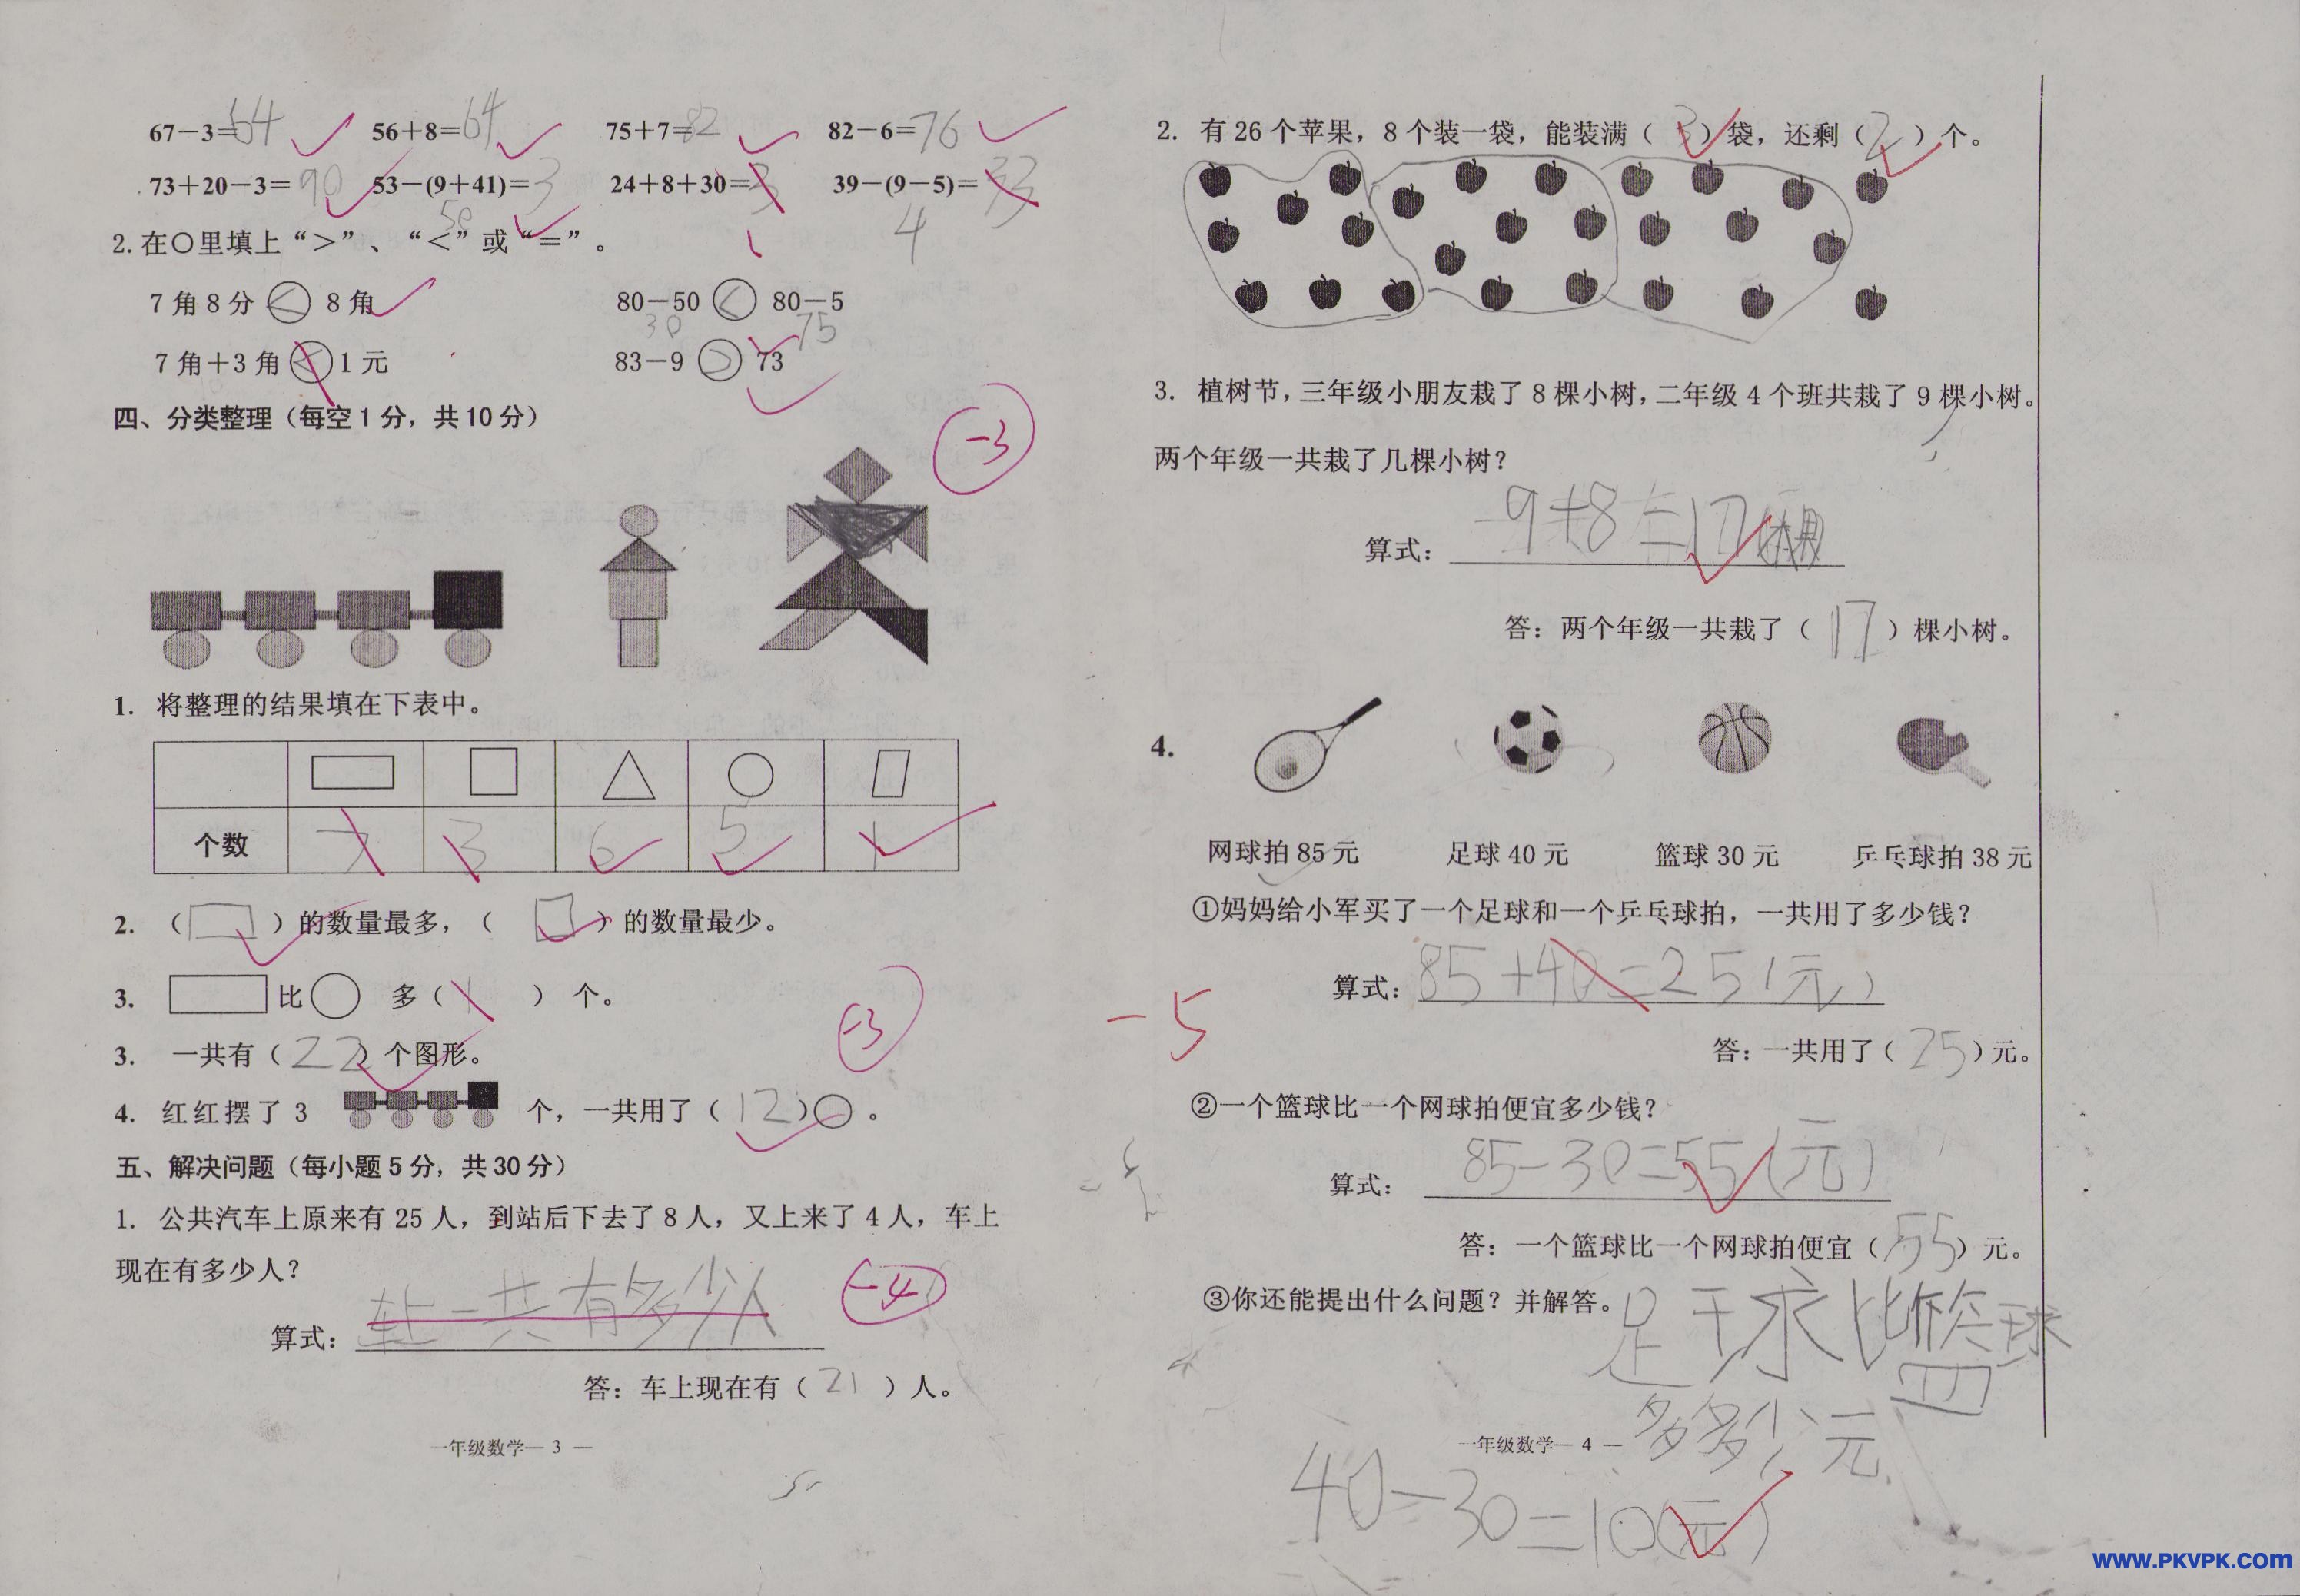 67－3=64 56＋8=64 75＋7=82 82－6=76
73＋20－3=90 53－(9＋41)=3 24＋8＋30=3 39－(9－5)=33
50 4
2.在○里填上“＞”、“＜”或“＝”。
7角8分＜8角 80－50＜80－5
30 75
7角＋3角＜1元 83－9＞73
四、分类整理（每空1分，共10分）
-3
1. 将整理的结果填在下表中。
个数 7 3 6 5 1
2. （ ）的数量最多，（ ）的数量最少。
3. 比 多（1）个。
3. 一共有（22）个图形。
-3
4. 红红摆了3 个，一共用了（12）○。
五、解决问题（每小题5分，共30分）
1. 公共汽车上原来有25人，到站后下去了8人，又上来了4人，车上
现在有多少人？
算式：车上一共有多少人
-4
答：车上现在有（21）人。
一年级数学— 3 —
2. 有26个苹果，8个装一袋，能装满（3）袋，还剩（2）个。
3. 植树节，三年级小朋友栽了8棵小树，二年级4个班共栽了9棵小树。
两个年级一共栽了几棵小树？
算式：9+8=17棵
答：两个年级一共栽了（17）棵小树。
4.
网球拍85元 足球40元 篮球30元 乒乓球拍38元
①妈妈给小军买了一个足球和一个乒乓球拍，一共用了多少钱？
算式：85+40=25(元)
-5
答：一共用了（25）元。
②一个篮球比一个网球拍便宜多少钱？
算式：85-30=55(元)
答：一个篮球比一个网球拍便宜（55）元。
③你还能提出什么问题？并解答。足球比篮球
多多少元
一年级数学— 4 —
40-30=10(元)
www.PKVPK.com